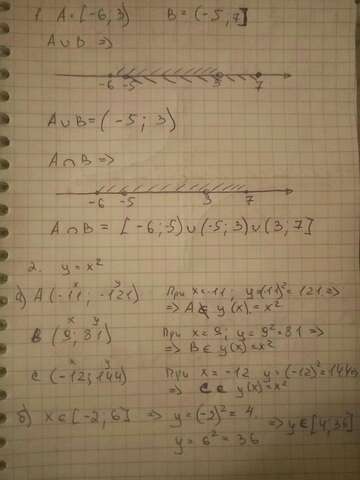 1. A = [-6, 3) B = (-5, 7]
A ∪ B =>
-6 -5 3 7
A ∪ B = (-5; 3)
A ∩ B =>
-6 -5 3 7
A ∩ B = [-6; -5) ∪ (-5; 3) ∪ (3; 7]
2. y = x²
x y
а) A (-11; -121) При x = -11; y = (11)² = 121 =>
=> A ∉ y(x) = x²
x y
B (9; 81) При x = 9; y = 9² = 81 =>
=> B ∈ y(x) = x²
x y
C (-12; 144) При x = -12 y = (-12)² = 144 =>
=> C ∈ y(x) = x²
б) x ∈ [-2; 6] => y = (-2)² = 4
y = 6² = 36 => y ∈ [4; 36]